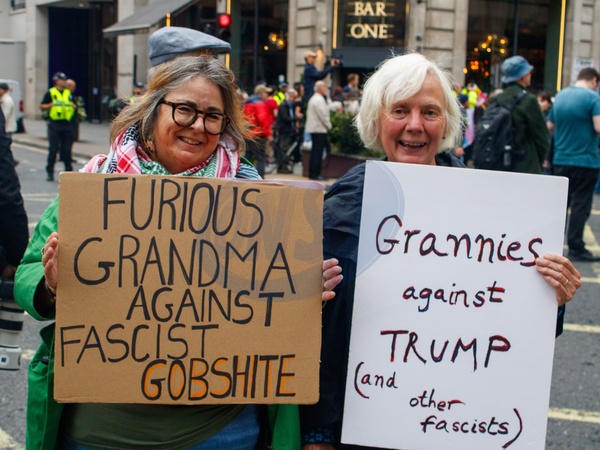 BAR
ONE
FURIOUS
GRANDMA
AGAINST
FASCIST
GOBSHITE
Grannies
against
TRUMP
(and
other
fascists)